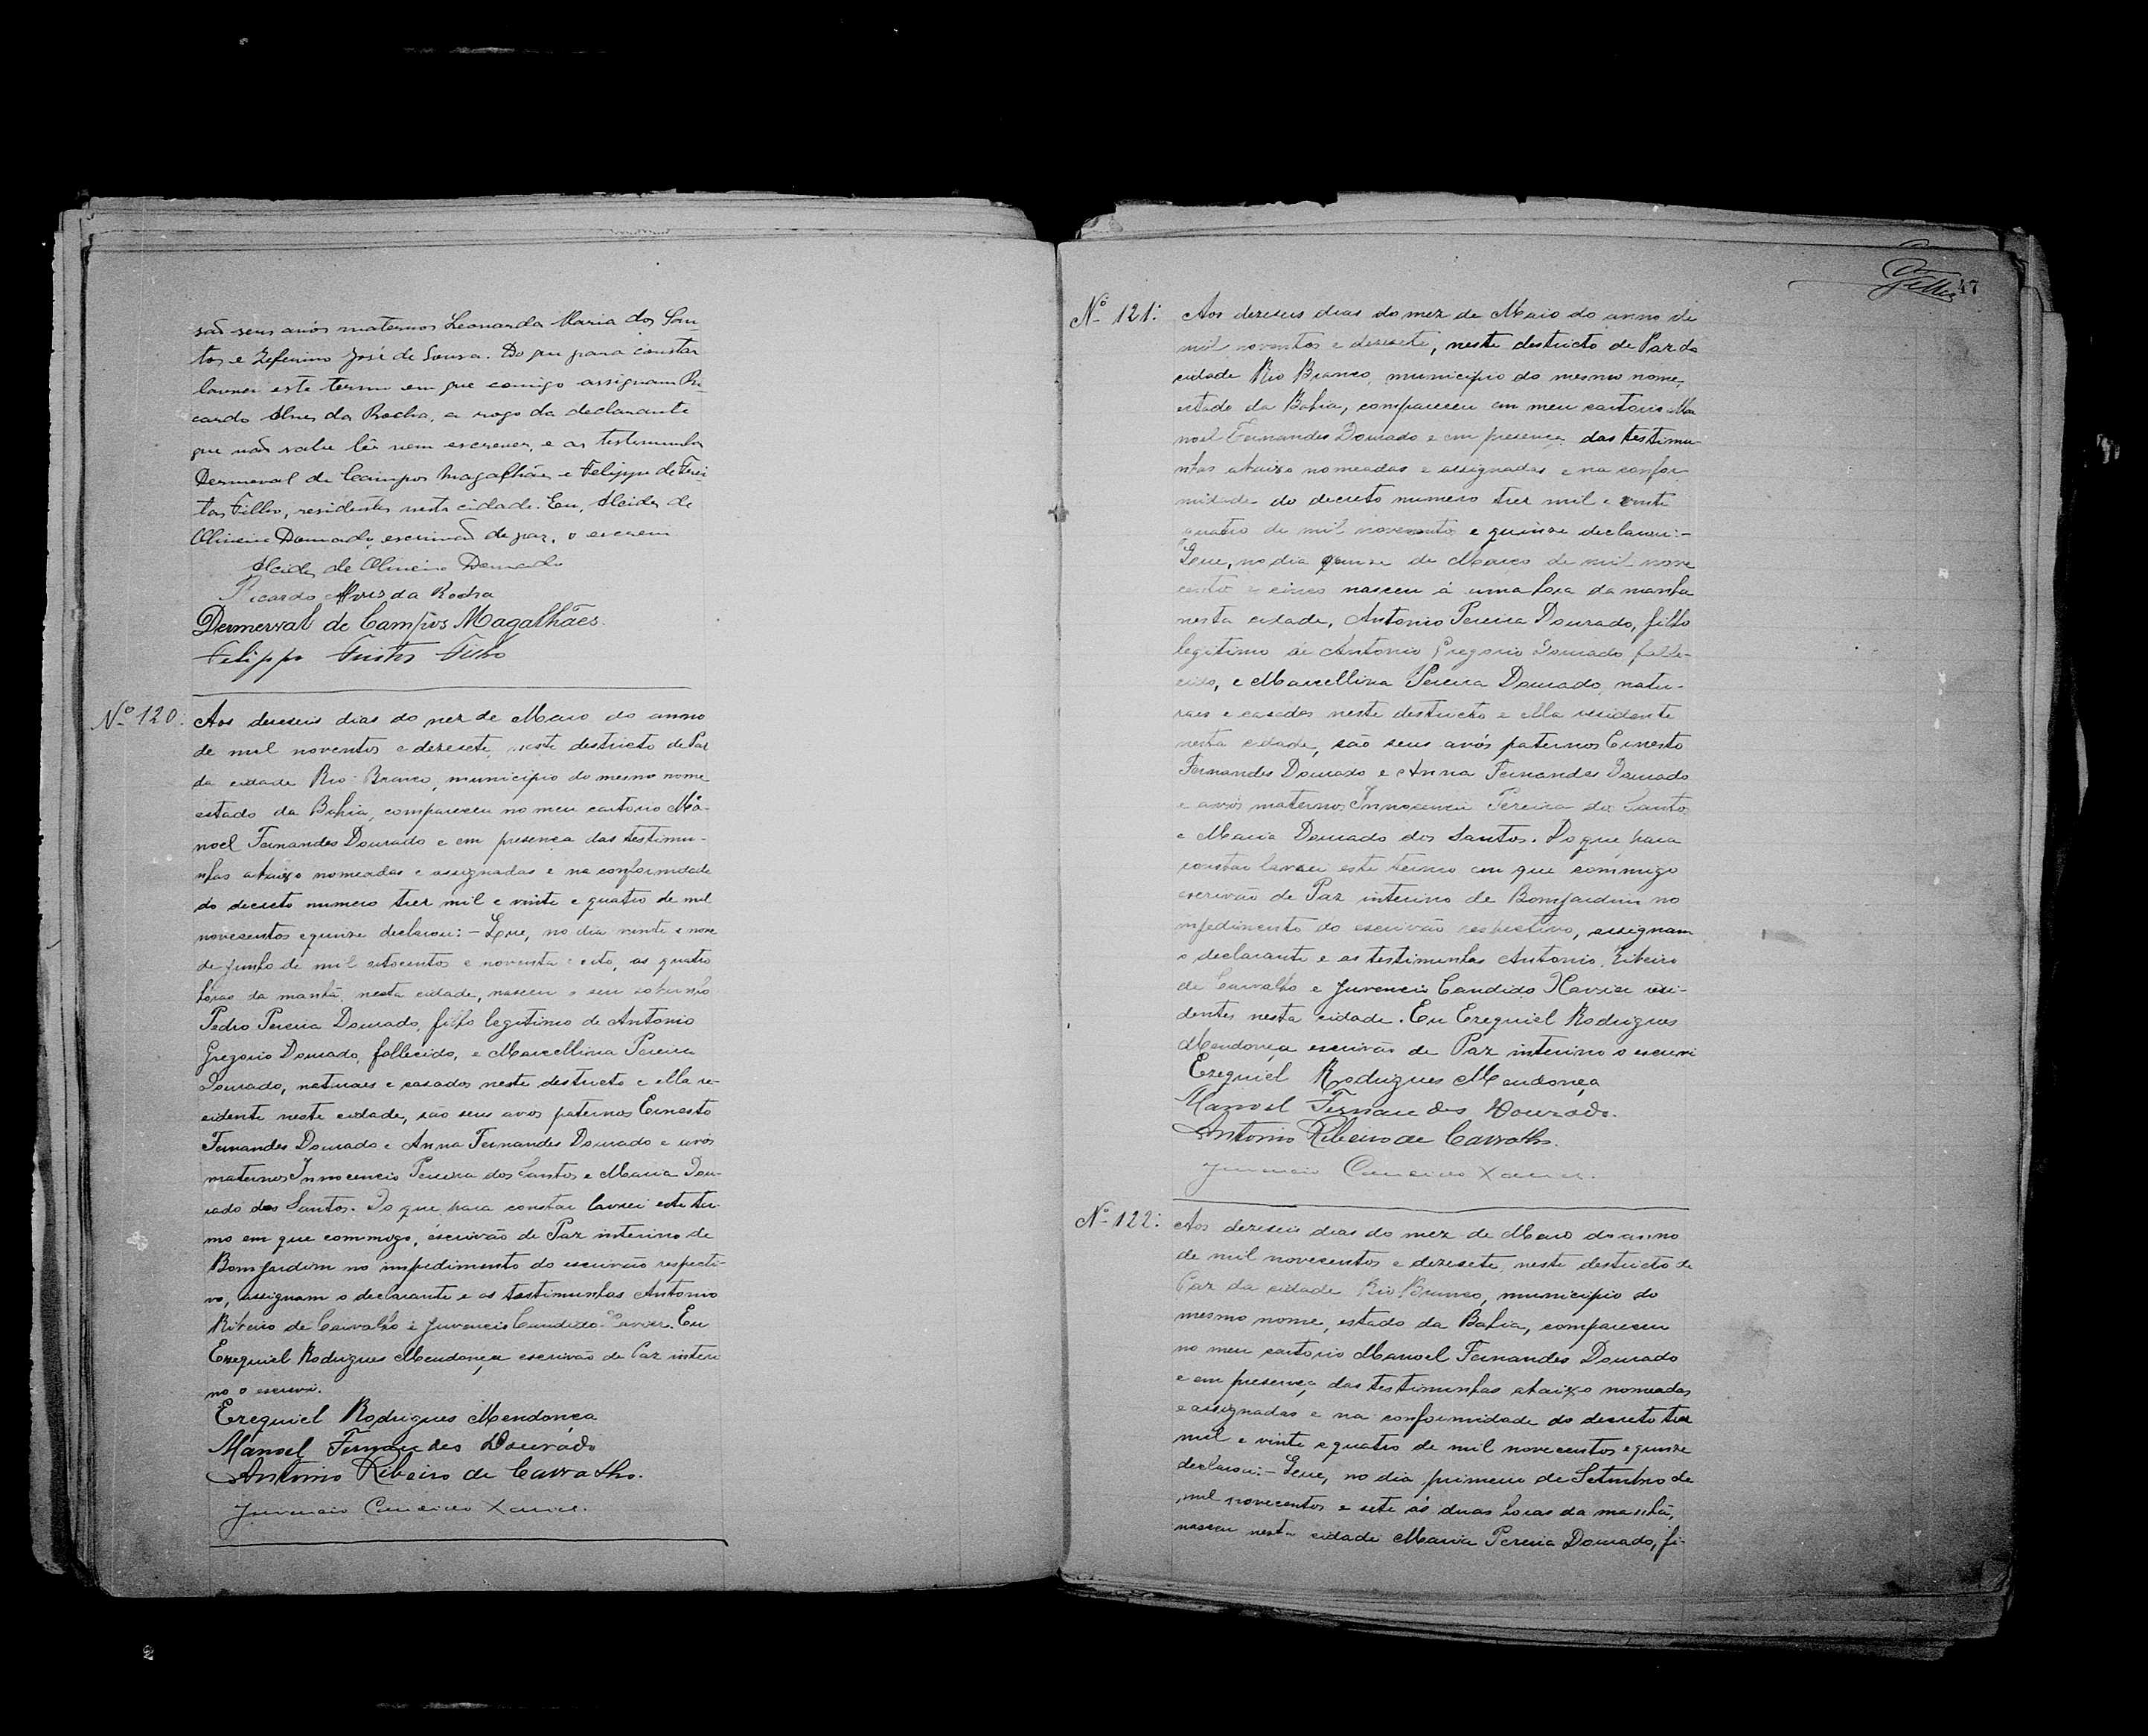 são seus avós maternos Leonarda Maria dos San
tos e Zeferino José de Sousa. Do que para constar
lavrei este termo em que comigo assignam Ri
cardo Alves da Rocha, a rogo da declarante
que não sabe lêr nem escrever, e as testemunhas
Dermeval de Campos Magalhães e Felippe de Frei
tas Filho, residentes nesta cidade. Eu, Alcides de
Oliveira Dourado, escrivão de paz, o escrevi
Alcides de Oliveira Dourado
Ricardo Alves da Rocha
Dermerval de Campos Magalhães.
Felippe Freitas Filho
Nº 120: Aos dezeseis dias do mez de Maio do anno
de mil noventos e dezesete, neste destricto de Paz
da cidade Rio Branco, municipio do mesmo nome
estado da Bahia, compareceu no meu cartorio Ma-
noel Fernandes Dourado e em presença das testimu-
nhas abaixo nomeadas e assignadas e na conformidade
do decreto numero trez mil e vinte e quatro de mil
novecentos e quinze declarou: - Que, no dia vinte e nove
de junho de mil oitocentos e noventa e oito, as quatro
horas da manhã, nesta cidade, nasceu o seu sobrinho
Pedro Pereira Dourado, filho legitimo de Antonio
Gregorio Dourado, fallecido, e Marcellina Pereira
Dourado, naturaes e casados neste destricto e ella re-
sidente neste cidade, são seus avós paternos Ernesto
Fernandes Dourado e Anna Fernandes Dourado e avós
maternos Innocencio Pereira dos Santos e Maria Dou-
rado dos Santos. Do que para constar lavrei este ter-
mo em que commigo, escrivão de Paz interino de
Bom Jardim no impedimento do escrivão respecti-
vo, assignam o declarante e as testimunhas Antonio
Ribeiro de Carvalho e Juvencio Candido Xavier. Eu
Ezequiel Rodrigues Mendonça escrivão de Paz interi
no o escrevi.
Ezequiel Rodrigues Mendonça
Manoel Fernandes Dourado
Antonio Ribeiro de Carvalho.
Juvencio Candido Xavier.
47
Nº 121: Aos dezeseis dias do mez de Maio do anno de
mil noventos e dezesete, neste destricto de Paz da
cidade Rio Branco, municipio do mesmo nome,
estado da Bahia, compareceu em meu cartorio Ma
noel Fernandes Dourado e em presença das testimu-
nhas abaixo nomeadas e assignadas e na confor-
midade do decreto numero trez mil e vinte
quatro de mil novecentos e quinze declarou: -
Que, no dia quinze de Março de mil nove
centos e cinco nasceu á uma hora da manhã
nesta cidade, Antonio Pereira Dourado, filho
legitimo de Antonio Gregorio Dourado falle-
cido, e Marcellina Pereira Dourado, natu-
raes e casados neste destricto e ella residente
nesta cidade, são seus avós paternos Ernesto
Fernandes Dourado e Anna Fernandes Dourado
e avós maternos Innocencio Pereira dos Santos
e Maria Dourado dos Santos. Do que para
constar lavrei este termo em que commigo
escrivão de Paz interino de Bomjardim no
impedimento do escrivão respectivo, assignam
o declarante e as testimunhas Antonio Ribeiro
de Carvalho e Juvencio Candido Xavier resi-
dentes nesta cidade. Eu Ezequiel Rodrigues
Mendonça escrivão de Paz interino o escrevi
Ezequiel Rodrigues Mendonça
Manoel Fernandes Dourado.
Antonio Ribeiro de Carvalho.
Juvencio Candido Xavier.
Nº 122: Aos dezeseis dias do mez de Maio do anno
de mil novecentos e dezesete, neste destricto de
Paz da cidade Rio Branco, municipio do
mesmo nome, estado da Bahia, compareceu
no meu cartorio Manoel Fernandes Dourado
e em presença das testimunhas abaixo nomeadas
e assignadas e na conformidade do decreto trez
mil e vinte e quatro de mil novecentos e quinze
declarou: - Que, no dia primeiro de Setembro de
mil novecentos e sete ás duas horas da manhã,
nasceu nesta cidade Maria Pereira Dourado, fi-